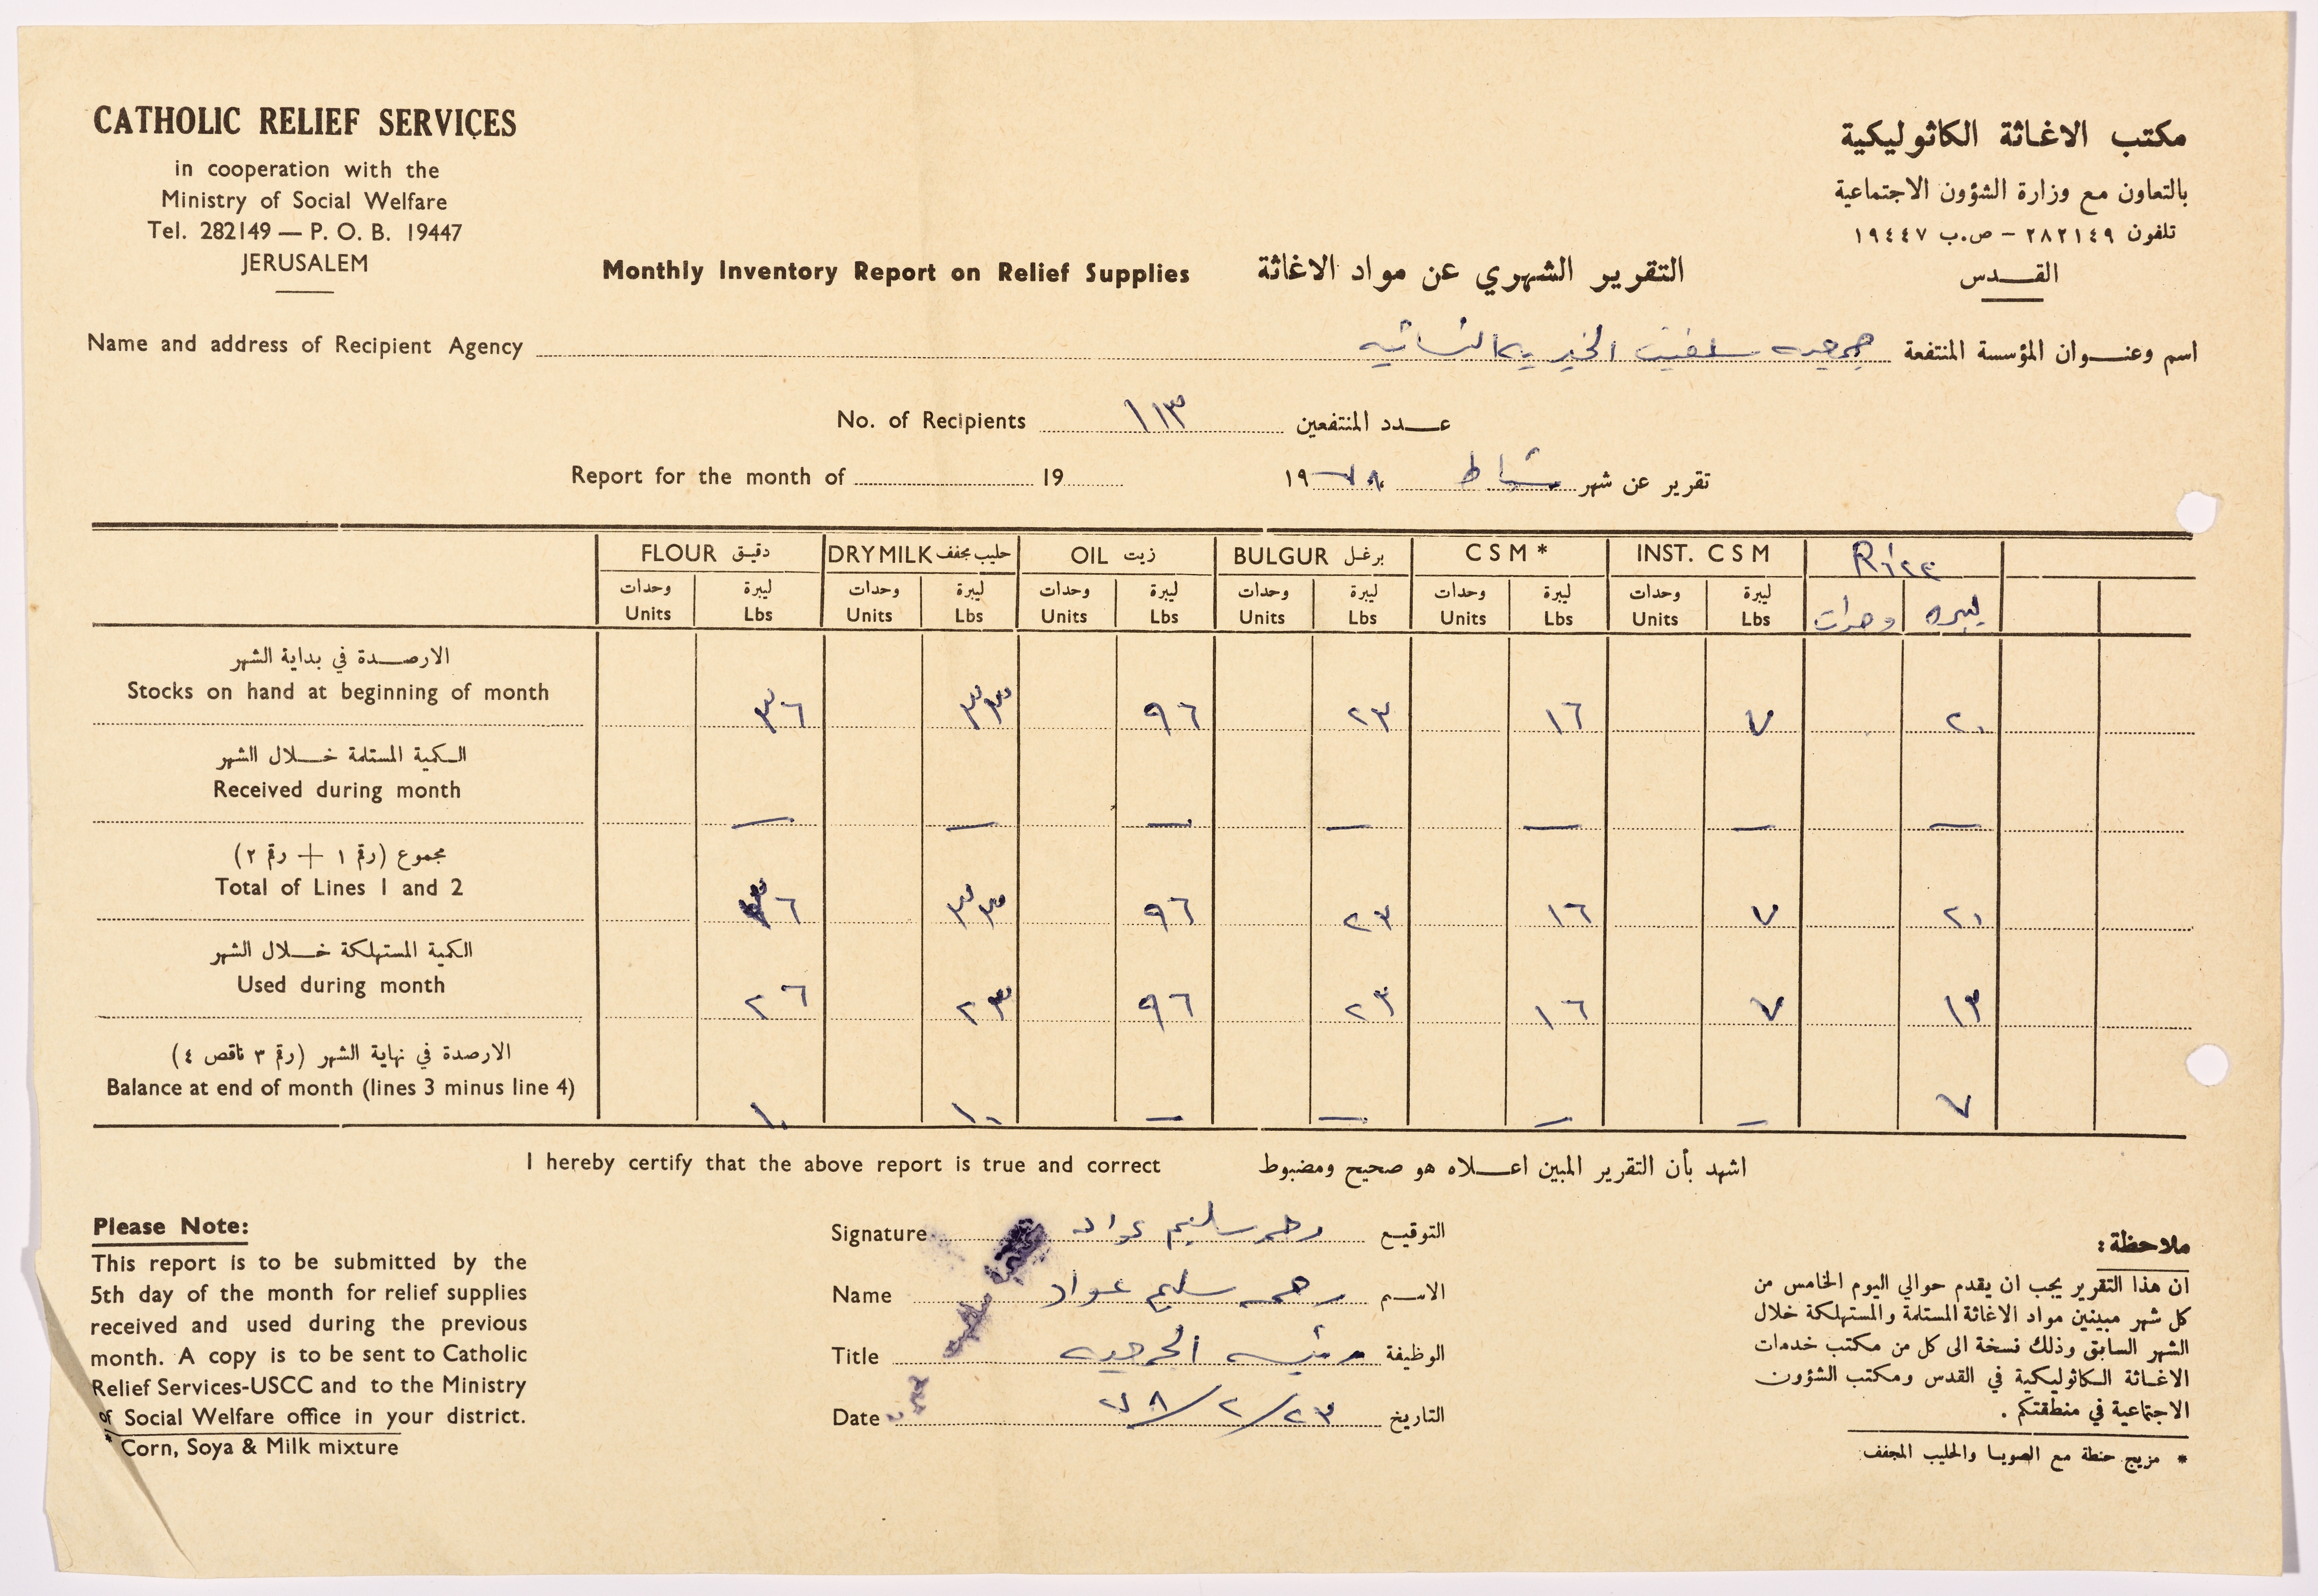 CATHOLIC RELIEF SERVICES
in cooperation with the
Ministry of Social Welfare
Tel. 282149 — P. O. B. 19447
JERUSALEM
مكتب الاغاثة الكاثوليكية
بالتعاون مع وزارة الشؤون الاجتماعية
تلفون ٢٨٢١٤٩ – ص.ب ١٩٤٤٧
القدس
Monthly Inventory Report on Relief Supplies التقرير الشهري عن مواد الاغاثة
Name and address of Recipient Agency جمعيه سلفيت الخيريه النسائيه اسم وعنوان المؤسسة المنتفعة
No. of Recipients ١١٣ عدد المنتفعين
Report for the month of 19 تقرير عن شهر شباط ١٩٧٨
FLOUR دقيق DRY MILK حليب مجفف OIL زيت BULGUR برغل C S M * INST. C S M Rice
وحدات ليبرة وحدات ليبرة وحدات ليبرة وحدات ليبرة وحدات ليبرة وحدات ليبرة وحدات ليبره
Units Lbs Units Lbs Units Lbs Units Lbs Units Lbs Units Lbs
الارصدة في بداية الشهر
Stocks on hand at beginning of month ٣٦ ٣٣ ٩٦ ٢٣ ١٦ ٧ ٢٠
الكمية المستلمة خلال الشهر
Received during month — — — — — — —
مجموع (رقم ١ + رقم ٢)
Total of Lines 1 and 2 ٣٦ ٣٣ ٩٦ ٢٣ ١٦ ٧ ٢٠
الكمية المستهلكة خلال الشهر
Used during month ٢٦ ٢٣ ٩٦ ٢٣ ١٦ ٧ ١٣
الارصدة في نهاية الشهر (رقم ٣ ناقص ٤)
Balance at end of month (lines 3 minus line 4) ١٠ ١٠ — — — — ٧
I hereby certify that the above report is true and correct اشهد بأن التقرير المبين اعلاه هو صحيح ومضبوط
Signature سليم عواد التوقيع
Name سليم عواد الاسم
Title رئيسه الجمعيه الوظيفة
Date ٢٣/٢/٧٨ التاريخ
Please Note:
This report is to be submitted by the
5th day of the month for relief supplies
received and used during the previous
month. A copy is to be sent to Catholic
Relief Services-USCC and to the Ministry
of Social Welfare office in your district.
* Corn, Soya & Milk mixture
ملاحظة :
ان هذا التقرير يجب ان يقدم حوالي اليوم الخامس من
كل شهر مبينين مواد الاغاثة المستلمة والمستهلكة خلال
الشهر السابق وذلك نسخة الى كل من مكتب خدمات
الاغاثة الكاثوليكية في القدس ومكتب الشؤون
الاجتماعية في منطقتكم .
* مزيج حنطة مع الصويا والحليب المجفف